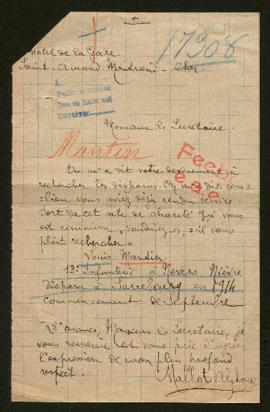 Hôtel de la Gare
Saint-Amand Montrond - Cher
17908
Monsieur le Secrétaire
Mantin
On m'a dit votre dévouement à
rechercher les disparus. On m'a dit com-
bien vous avez déjà rendu service
de cet acte de charité qui vous
est commun, voudriez-s'il vous
plaît rechercher
Louis Mandin
13e Infanterie à Nevers Nièvre
disparu à Sarrebourg en 1914
commencement de Septembre
D'avance, Monsieur le Secrétaire, je
vous remercie et vous prie d'agréer
l'expression de mon plus profond
respect.
Mallot